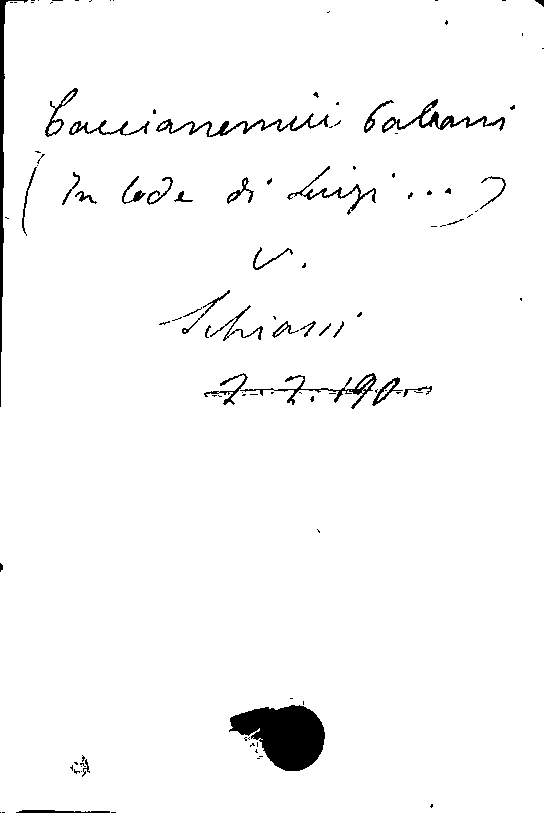 Caccianemici Palcani
(In lode di Luigi ...)
v.
Schiassi
2. 2. 190.